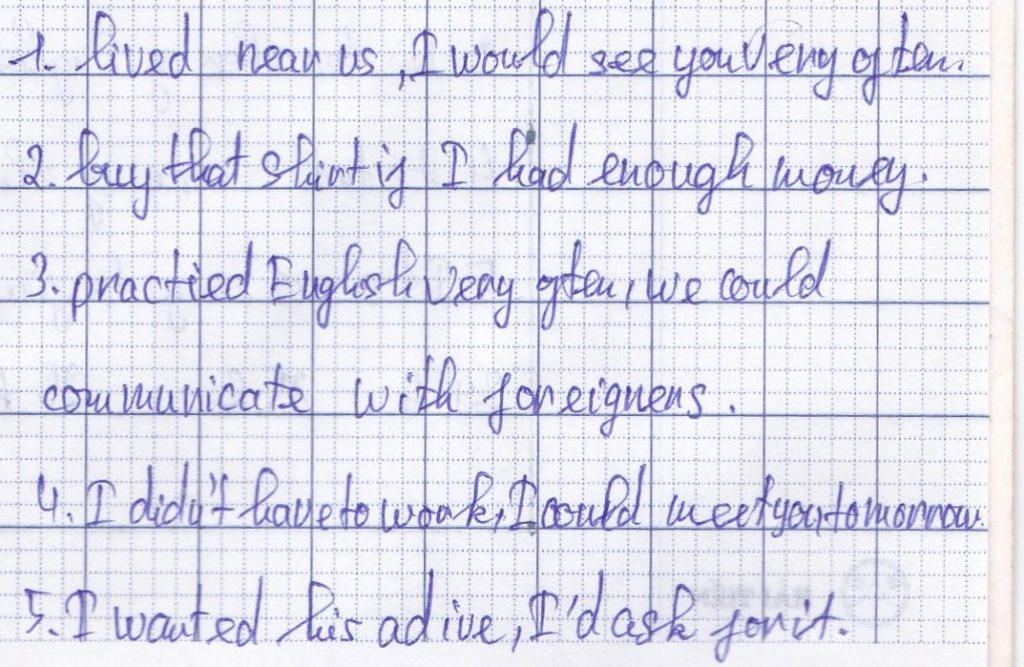 1. lived near us, I would see you very often.
2. buy that shirt if I had enough money.
3. practied English very often, we could
communicate with foreigners.
4. I didn't have to work, I could meet you tomorrow.
5. I wanted his adive, I'd ask for it.